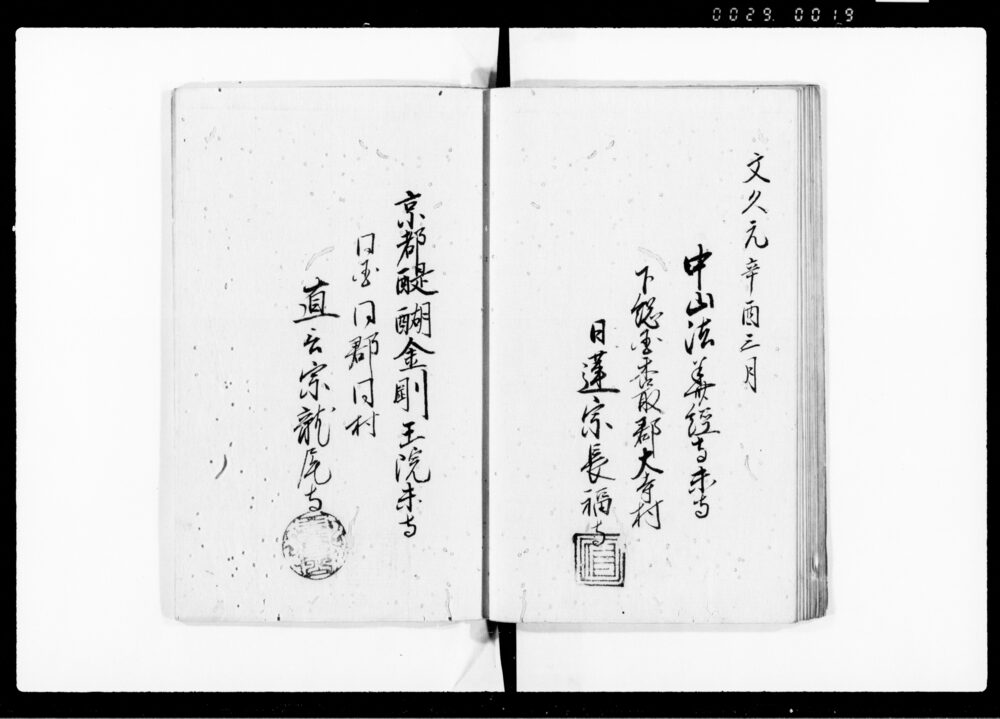 0029. 0019
文久元辛酉三月
中山法華経寺末寺
下総国香取郡大寺村
日蓮宗長福寺
京都醍醐金剛王院末寺
同国同郡同村
真言宗龍尾寺